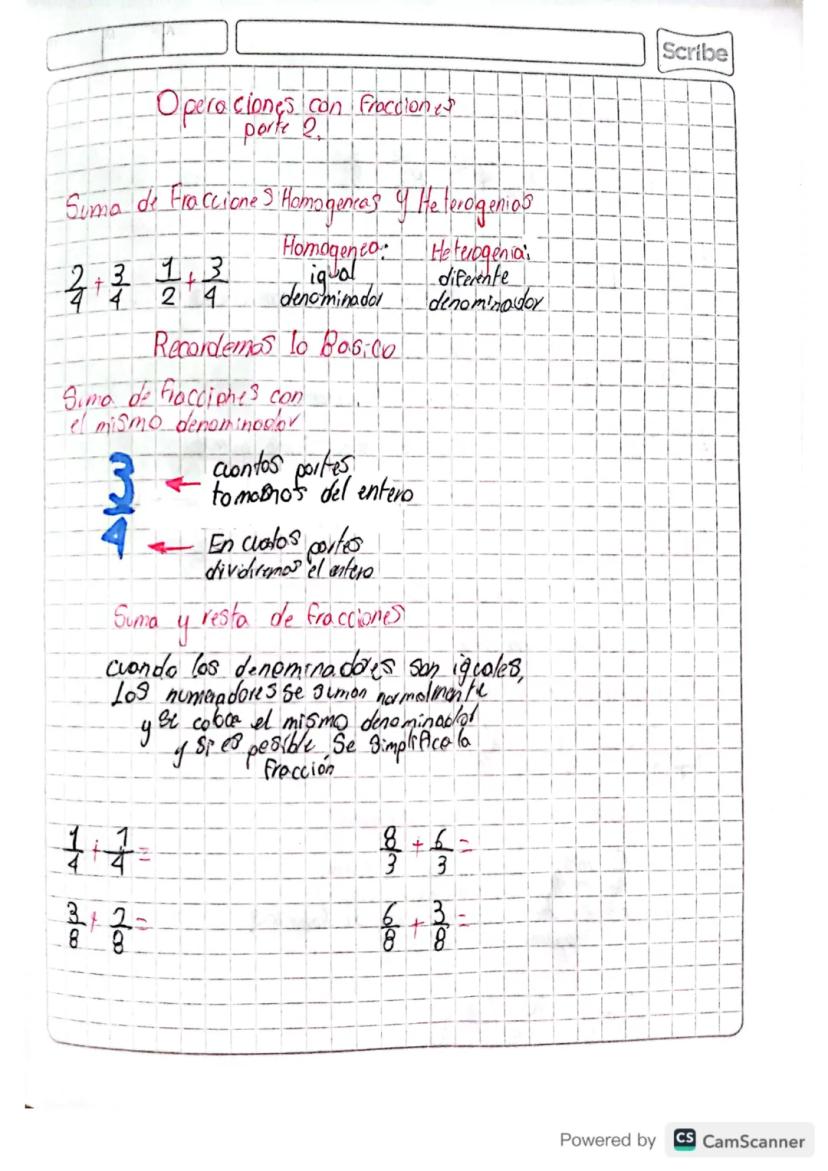 Scribe
Operaciones con fracciones
parte 2.
Suma de Fracciones Homogeneas y Heterogenias
Homogenea: Heterogenia:
2/4 + 3/4 1/2 + 3/4 igual diferente
denominador denominador
Recordemos lo Basico
Suma de fracciones con
el mismo denominador
3 ← cuantos partes
tomamos del entero
4 ← En cuatos partes
dividiremos el entero
Suma y resta de fracciones
cuando los denominadores son iguales,
Los numeradores se suman normalmente
y se coloca el mismo denominador
y si es posible, se simplifica la
fracción
1/4 + 1/4 = 8/3 + 6/3 =
3/8 + 2/8 = 6/8 + 3/8 =
Powered by CS CamScanner